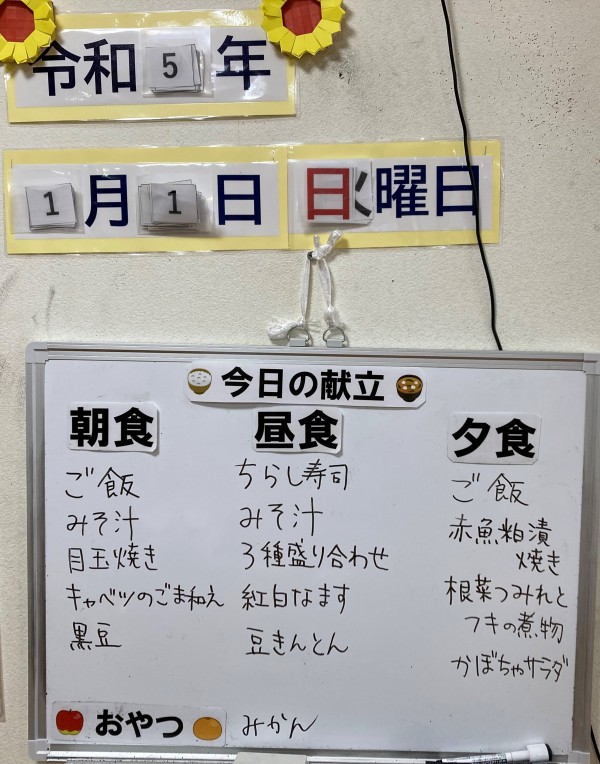 令和5年
1月1日 日曜日
今日の献立
朝食
ご飯
みそ汁
目玉焼き
キャベツのごま和え
黒豆
昼食
ちらし寿司
みそ汁
3種盛り合わせ
紅白なます
豆きんとん
夕食
ご飯
赤魚粕漬
焼き
根菜つみれと
フキの煮物
かぼちゃサラダ
おやつ みかん